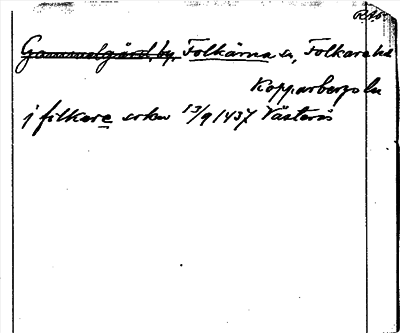 RAö
Gammelgård, by, Folkärna sn, Folkare hd
Kopparbergs län
j folkare sokn 13/9 1437 Västerås